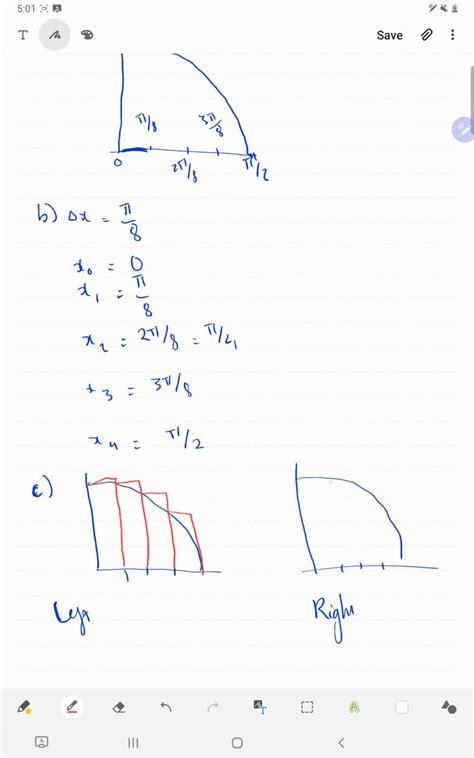 5:01
T
Save
π/8
3π/8
0
2π/8
π/2
b) Δx = π/8
x₀ = 0
x₁ = π/8
x₂ = 2π/8 = π/4
x₃ = 3π/8
x₄ = π/2
c)
Left
Right
T
A